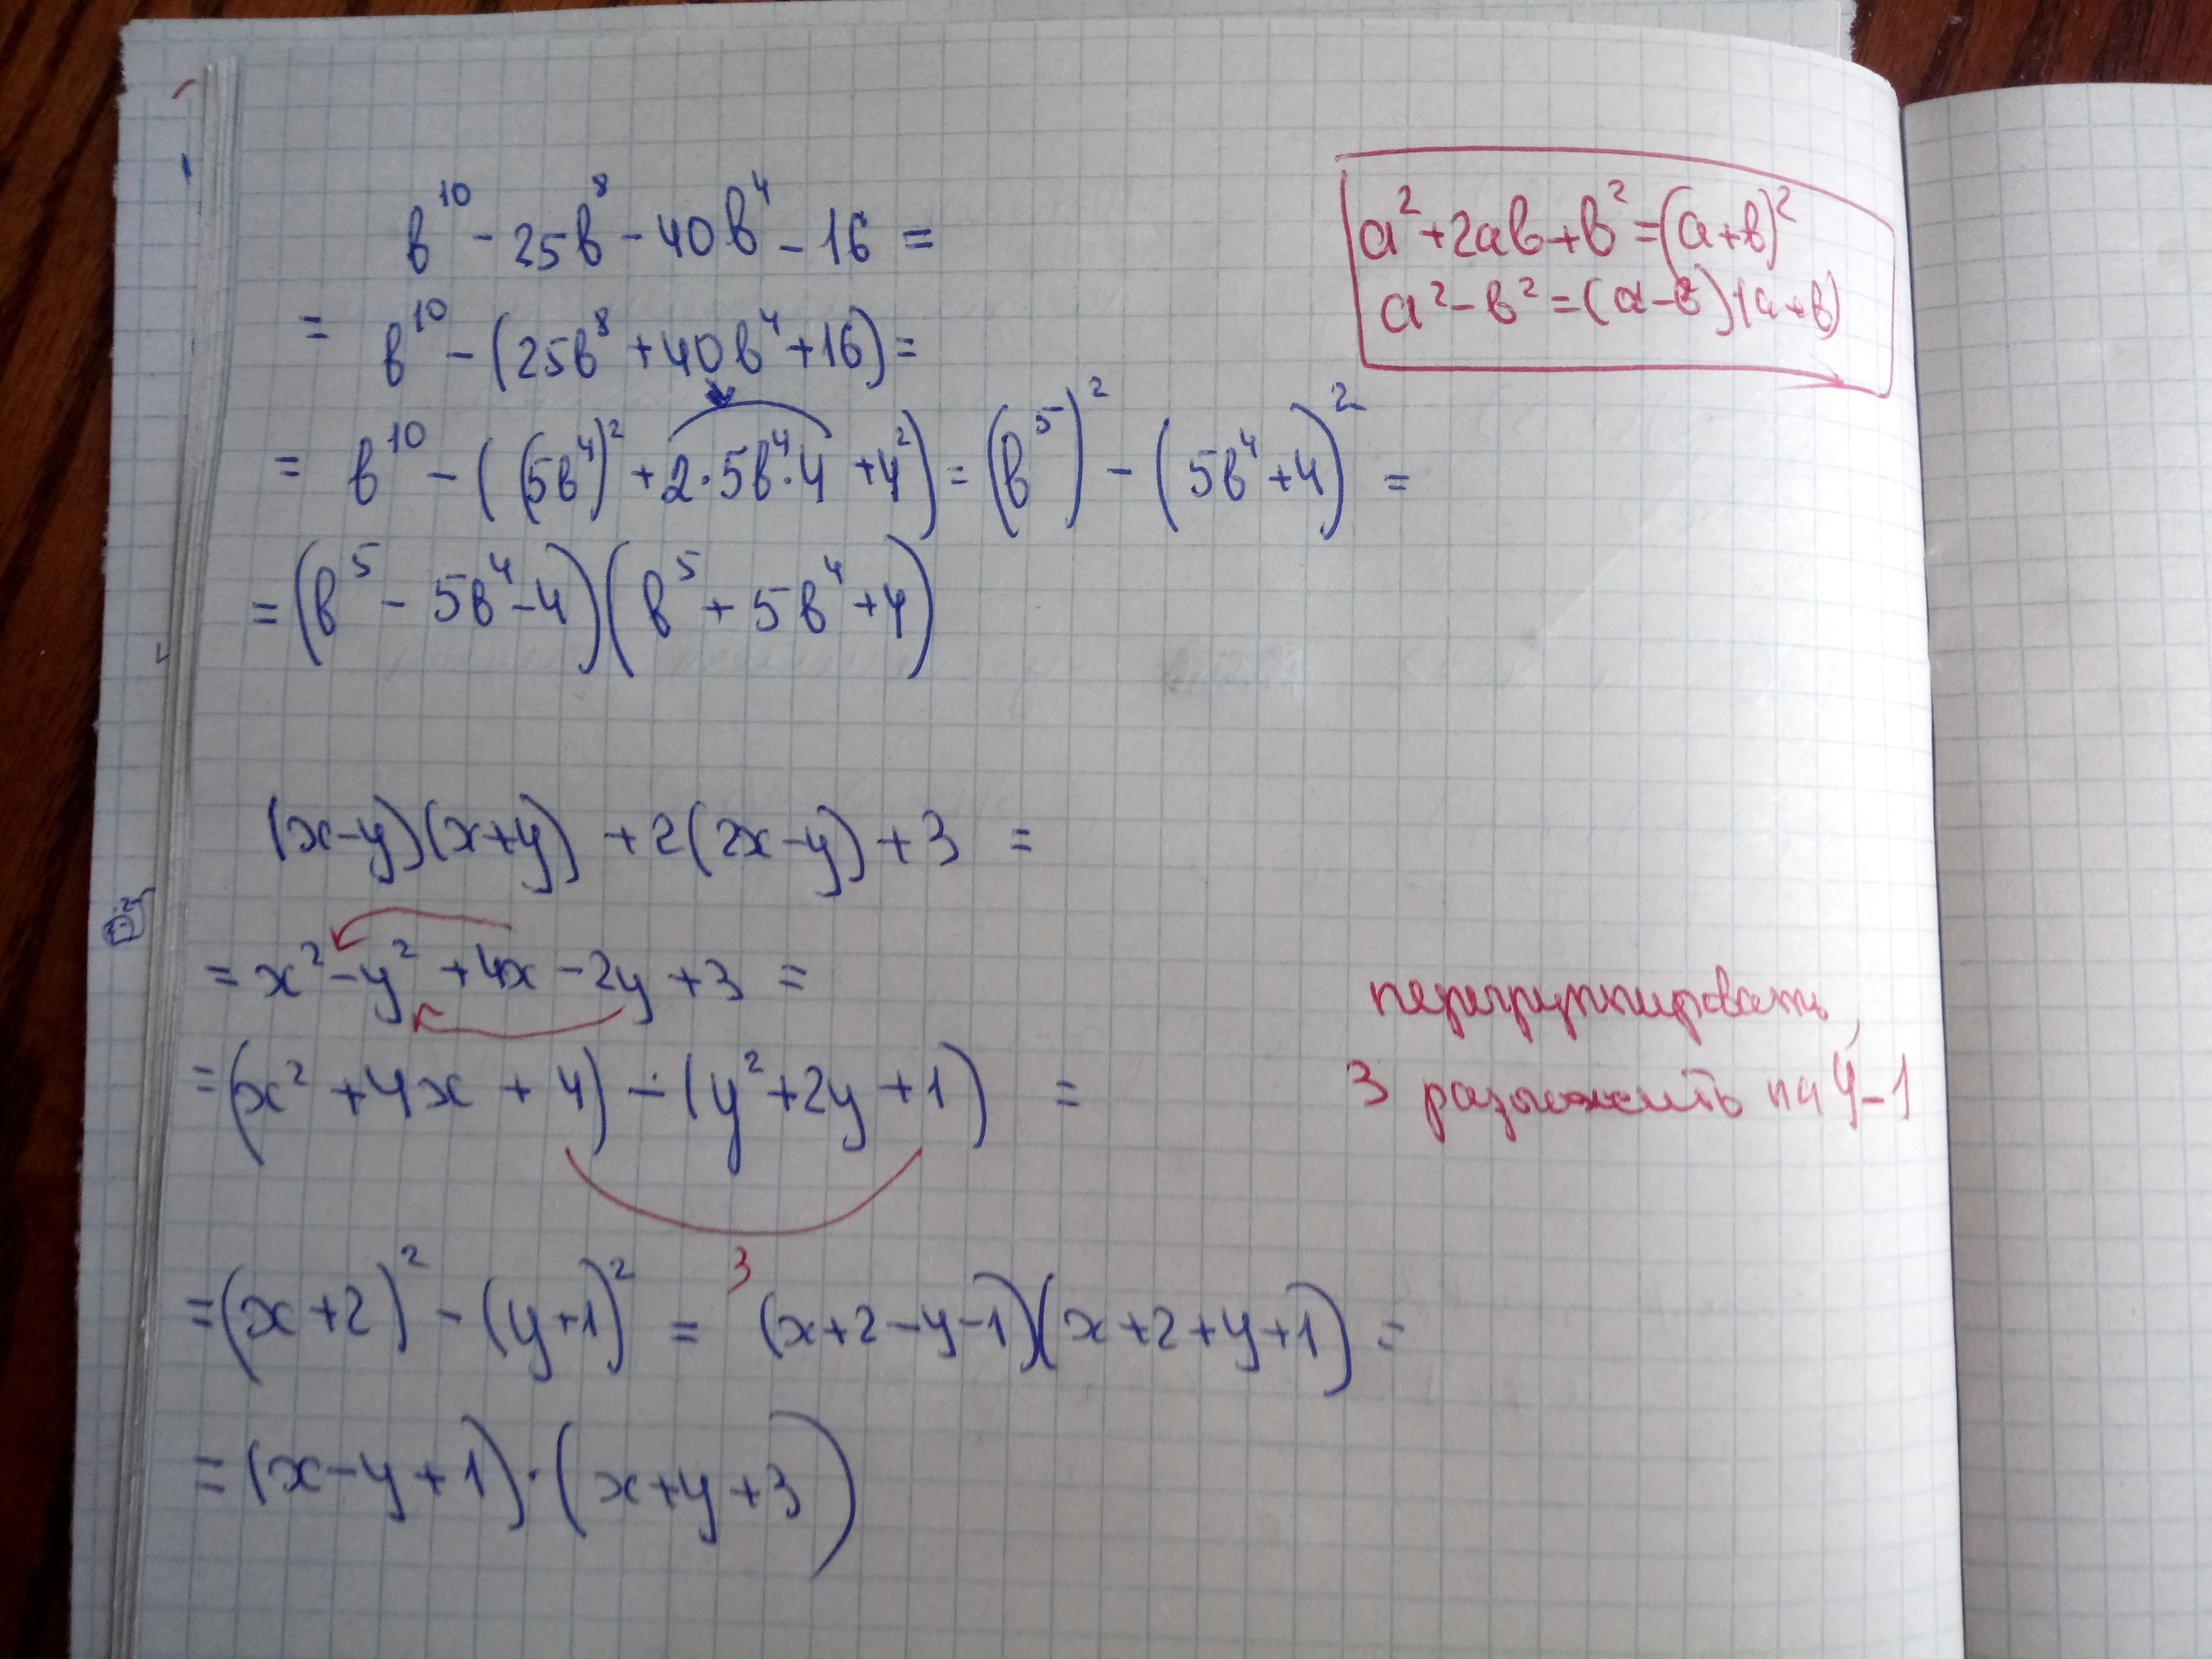 в¹⁰ - 25в⁸ - 40в⁴ - 16 =
= в¹⁰ - (25в⁸ + 40в⁴ + 16) =
= в¹⁰ - ((5в⁴)² + 2·5в⁴·4 + 4²) = (в⁵)² - (5в⁴ + 4)² =
= (в⁵ - 5в⁴ - 4)(в⁵ + 5в⁴ + 4)
a² + 2aв + в² = (a + в)²
a² - в² = (a - в)(a + в)
(x - y)(x + y) + 2(2x - y) + 3 =
= x² - y² + 4x - 2y + 3 =
= (x² + 4x + 4) - (y² + 2y + 1) =
3
перегруппировать,
3 разложить на 4 - 1
= (x + 2)² - (y + 1)² = (x + 2 - y - 1)(x + 2 + y + 1) =
= (x - y + 1)·(x + y + 3)